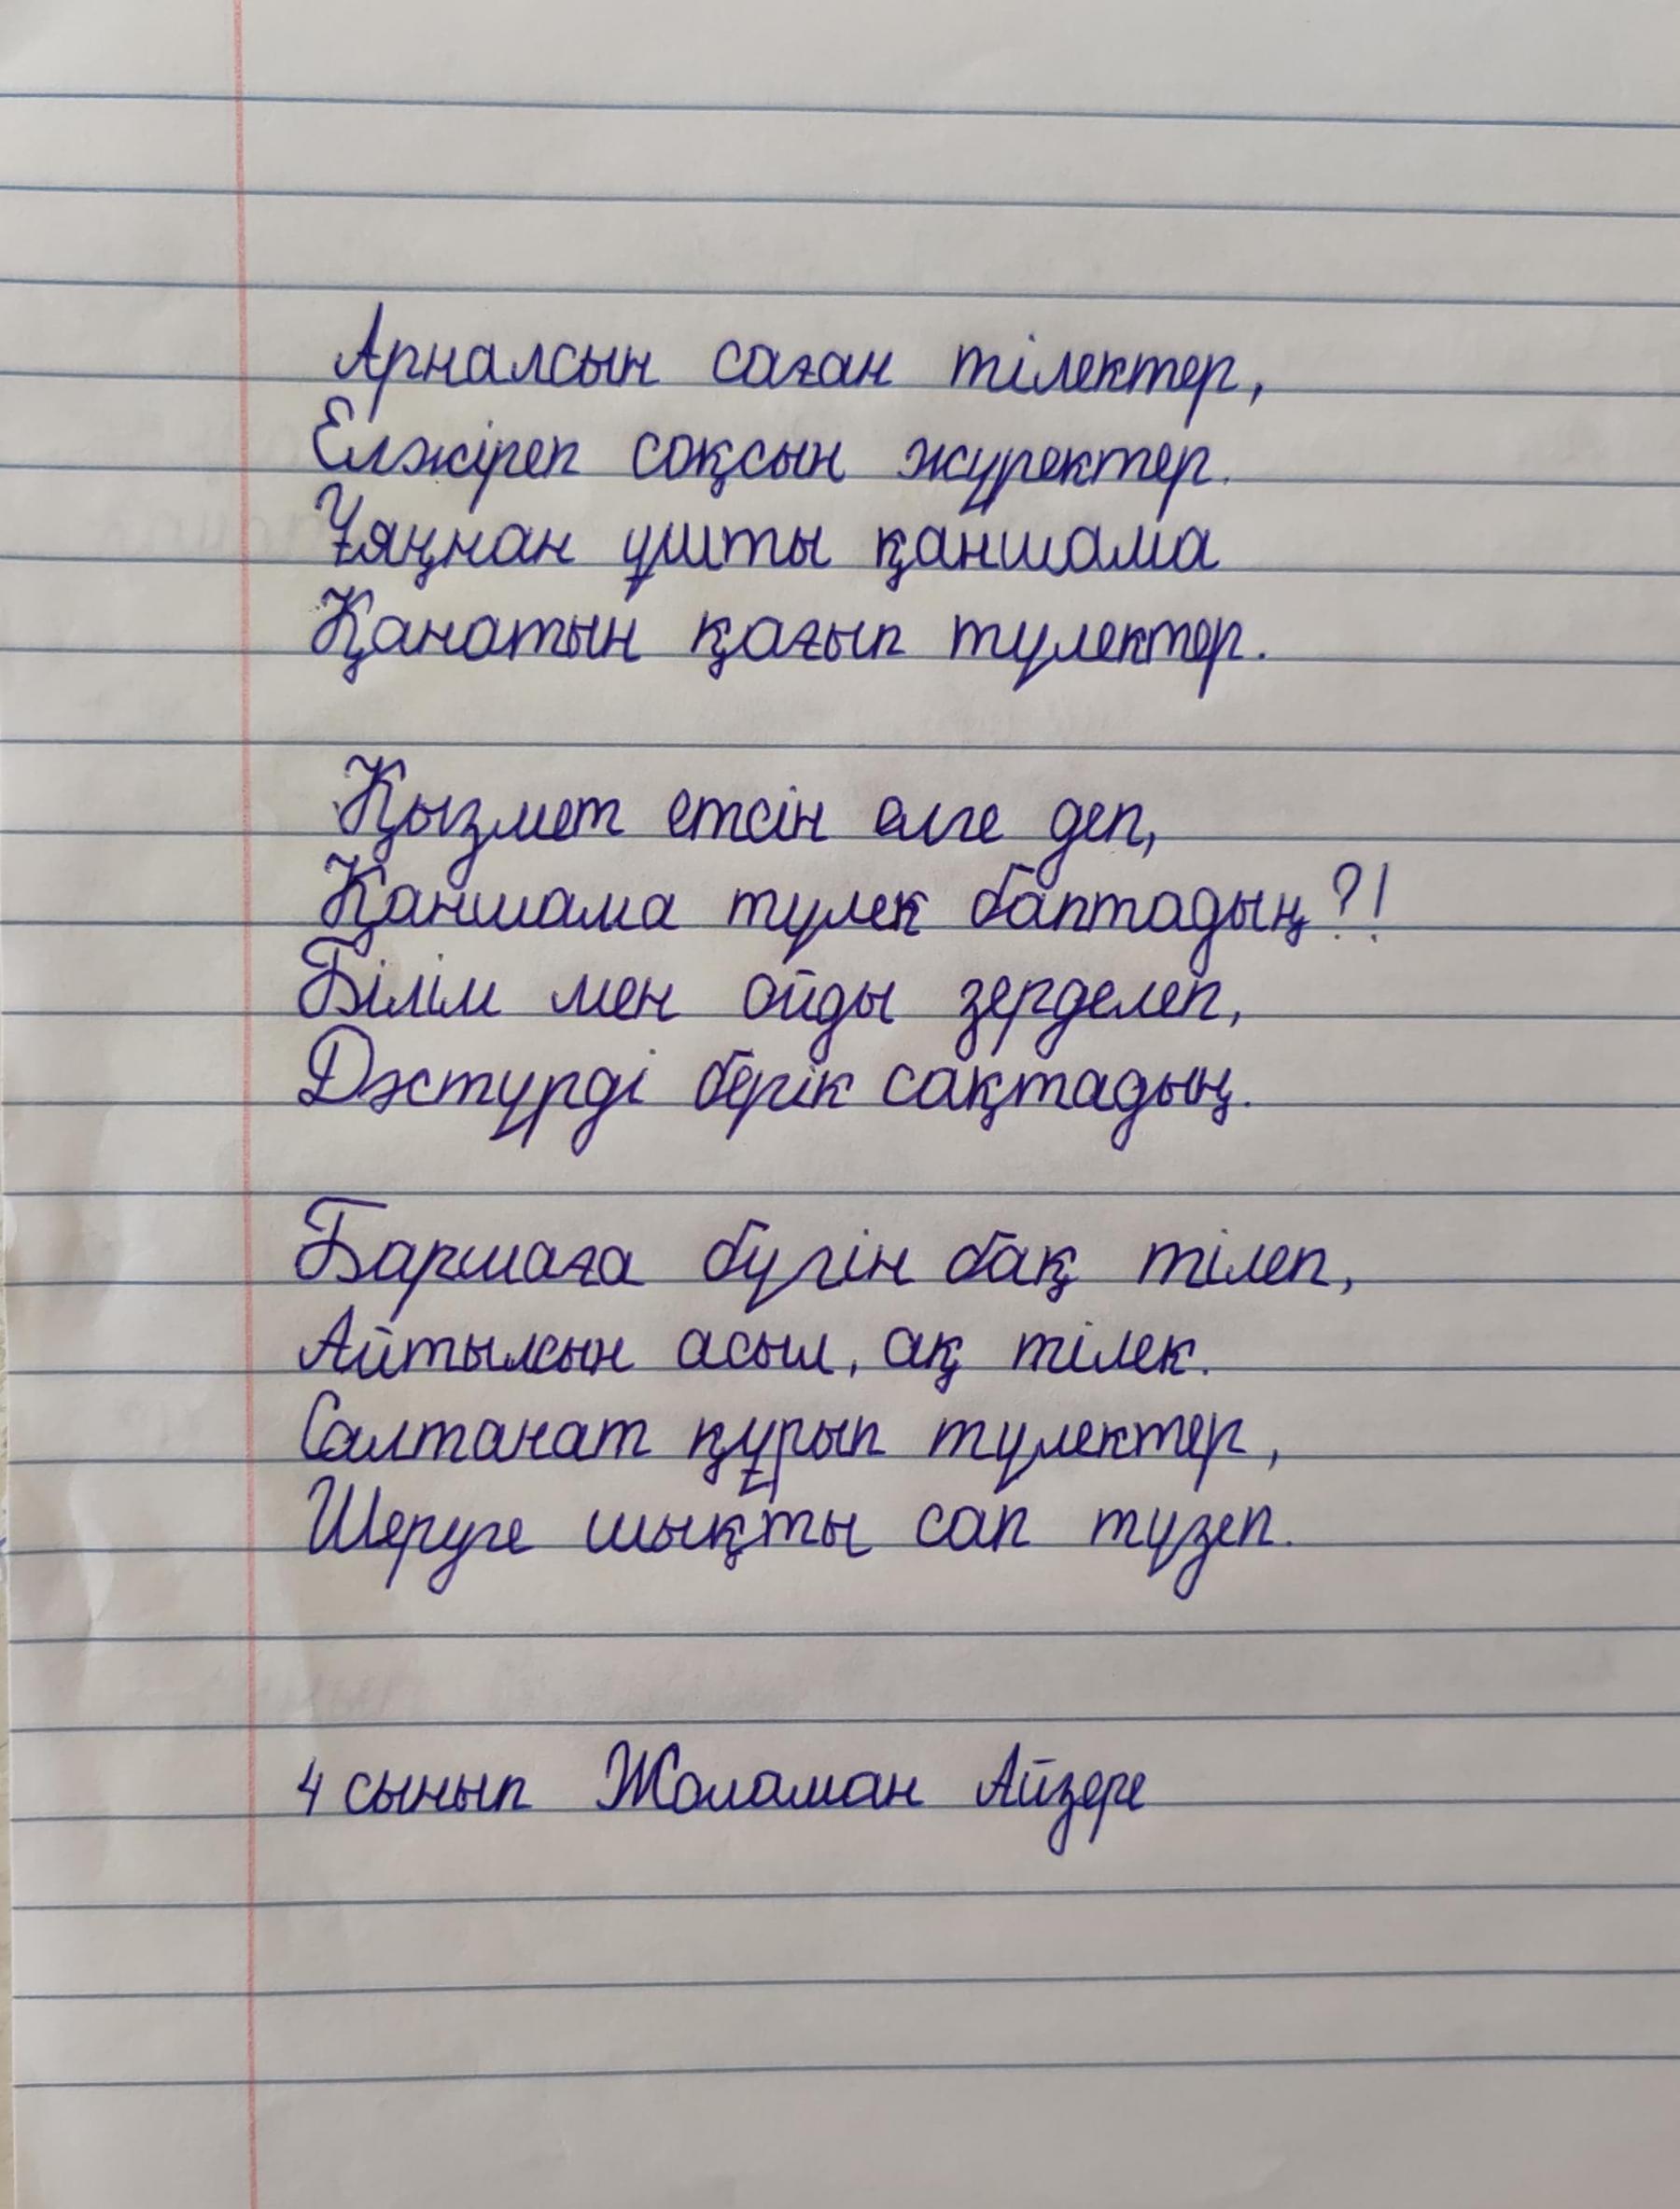 Арналсын саған тілектер,
Елжіреп соқсын жүректер.
Ұяңнан ұшты қаншама
Қанатын қағып түлектер.
Қызмет етсін елге деп,
Қаншама түлек баптадың?!
Білім мен ойды зерделеп,
Дәстүрді берік сақтадың.
Баршаға бүгін бақ тілеп,
Айтылсын асыл, ақ тілек.
Салтанат құрып түлектер,
Шеруге шықты сап түзеп.
4 сынып Жоламан Айзере